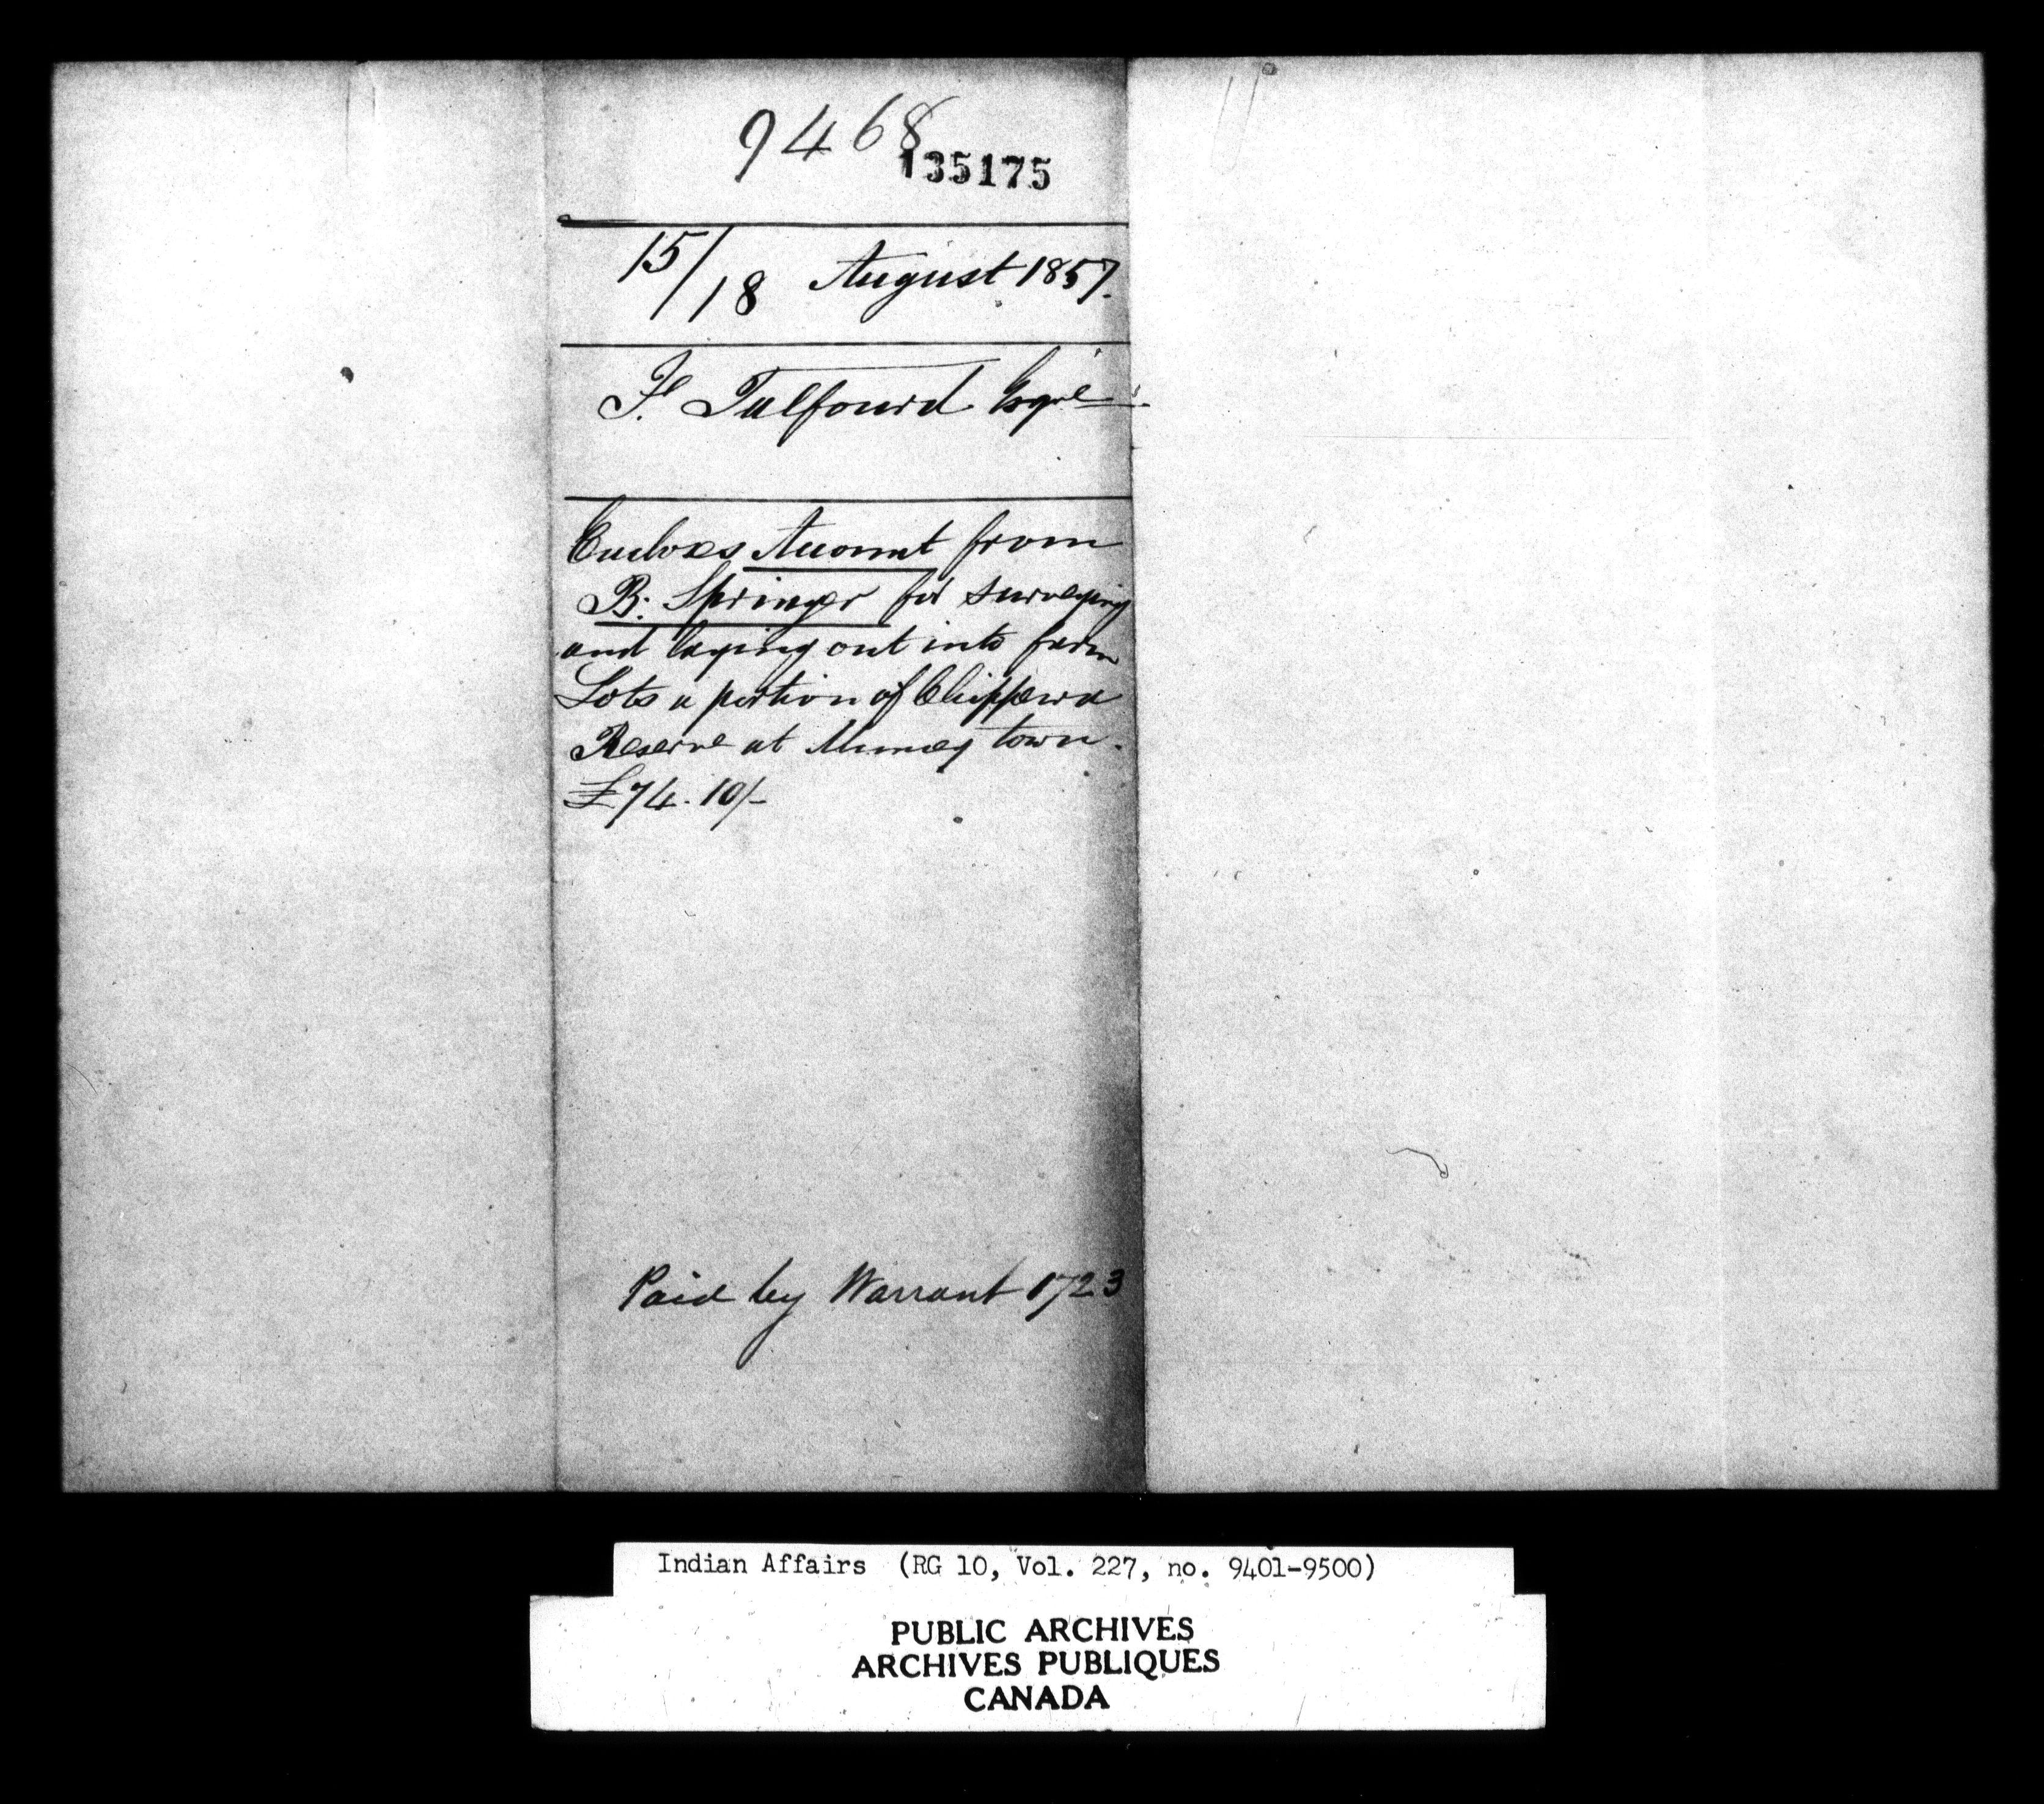 9468
135175
15/18 August 1857.
F. Talfourd Esqre
Encloses Account from
B. Springer for surveying
and laying out into farm
Lots a portion of Chippewa
Reserve at Muncey town.
£74.10/-
Paid by Warrant 1723
Indian Affairs (RG 10, Vol. 227, no. 9401-9500)
PUBLIC ARCHIVES
ARCHIVES PUBLIQUES
CANADA